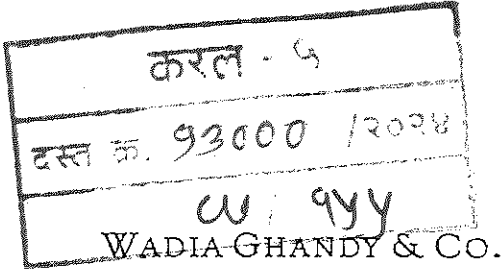 करल - ५
दस्त क्र. १३००० /२०२४
७५ १५५
WADIA GHANDY & CO.